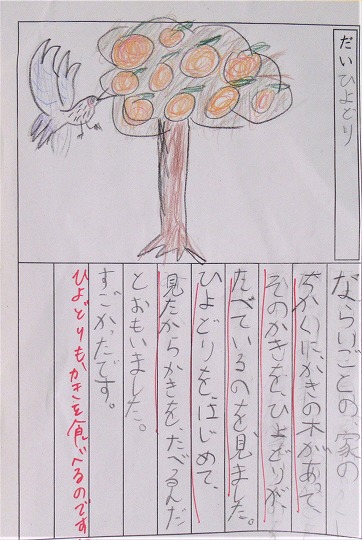 だいひよどり
ならいごとの、家の
ちかくに、かきの木があって
そのかきを、ひよどりが、
たべているのを見ました。
ひよどりをはじめて、
見たからかきをたべるんだ
とおもいました。
すごかったです。
ひよどりも、かきを食べるのです